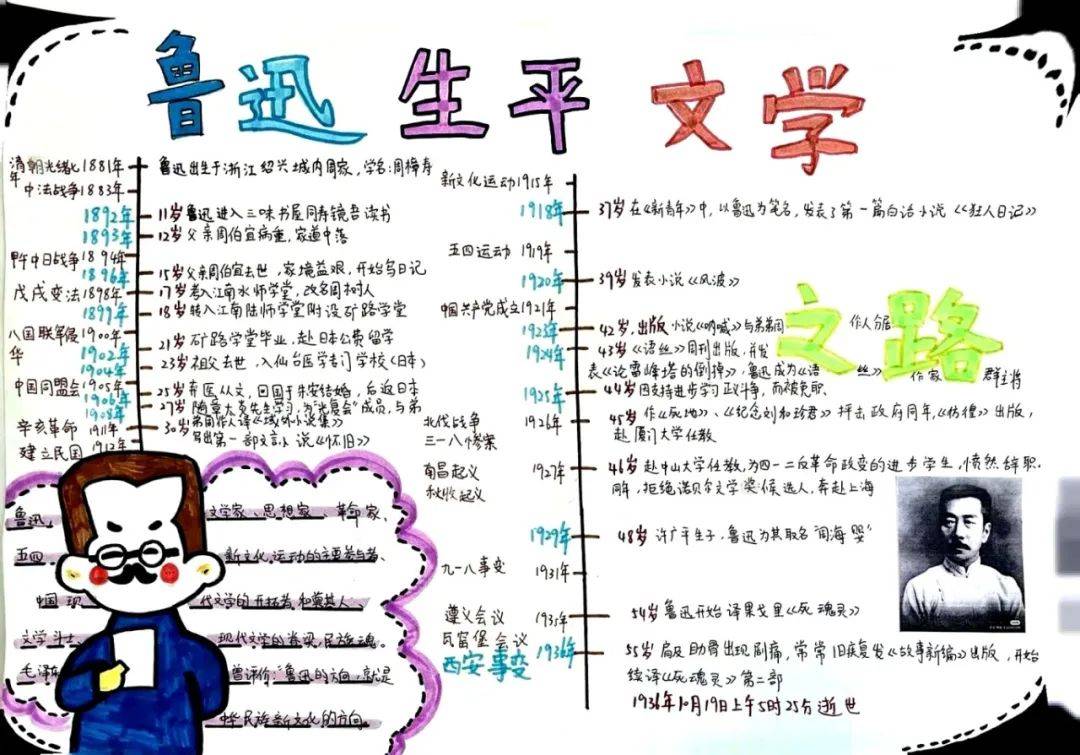 鲁迅生平文学
之路
清朝光绪七年 1881年 鲁迅出生于浙江绍兴城内周家,学名:周樟寿
中法战争1883年
1892年 11岁鲁迅进入三味书屋同寿镜吾读书
1893年 12岁父亲周伯宜病重,家道中落
甲午中日战争1894年
1896年 15岁父亲周伯宜去世,家境益艰,开始写日记
戊戌变法1898年 17岁考入江南水师学堂,改名周树人
1899年 18岁转入江南陆师学堂附设矿路学堂
八国联军侵华 1900年
1902年 21岁矿路学堂毕业,赴日本公费留学
1904年 23岁祖父去世,入仙台医学专门学校(日本)
中国同盟会1905年
1906年 25岁弃医从文,回国于朱安结婚,后返日本
1908年 27岁随章太炎先生学习,为"光复会"成员,与弟
弟周作人译《域外小说集》
辛亥革命 1911年 30岁写出第一部文言小说《怀旧》
建立民国 1912年
鲁迅, 文学家、思想家 革命家、
五四 新文化运动的主要参与者、
中国现 代文学的开拓者和奠基人
文学斗士 现代文学的脊梁,民族魂。
毛泽东 曾评价:鲁迅的方向,就是
中华民族新文化的方向。
新文化运动1915年
1918年 37岁在《新青年》中,以鲁迅为笔名,发表了第一篇白话小说《狂人日记》
五四运动 1919年
1920年 39岁发表小说《风波》
中国共产党成立1921年
1923年 42岁,出版小说《呐喊》与弟弟周 作人分居
1924年 43岁《语丝》周刊出版,并发
表《论雷峰塔的倒掉》,鲁迅成为《语 丝》 作家 群主将
1925年 44岁因支持进步学习正义斗争,而被免职.
北伐战争
三一八惨案 1926年 45岁作《死地》、《纪念刘和珍君》抨击政府同年,《彷徨》出版,
赴厦门大学任教
南昌起义
秋收起义 1927年 46岁赴中山大学任教,为四一二反革命政变的进步学生,愤然辞职.
同年,拒绝诺贝尔文学奖候选人,奔赴上海
1929年 48岁许广平生子,鲁迅为其取名"周海婴"
九一八事变 1931年
遵义会议
瓦窑堡会议 1935年 54岁鲁迅开始译果戈里《死魂灵》
西安事变 1936年 55岁肩及肋骨出现剧痛,常常旧疾复发《故事新编》出版,开始
续译《死魂灵》第二部
1936年10月19日上午5时25分逝世